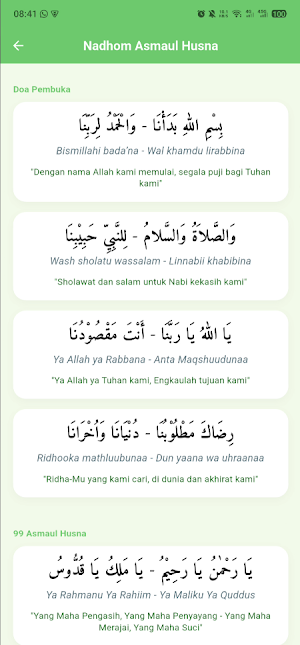 08:41
100
Nadhom Asmaul Husna
Doa Pembuka
بِسْمِ اللهِ بَدَأْنَا - وَالْحَمْدُ لِرَبِّنَا
Bismillahi bada'na - Wal khamdu lirabbina
"Dengan nama Allah kami memulai, segala puji bagi Tuhan
kami"
وَالصَّلَاةُ وَالسَّلَامُ - لِلنَّبِيِّ حَبِيْبِنَا
Wash sholatu wassalam - Linnabii khabibina
"Sholawat dan salam untuk Nabi kekasih kami"
يَا اللهُ يَا رَبَّنَا - أَنْتَ مَقْصُوْدُنَا
Ya Allah ya Rabbana - Anta Maqshuudunaa
"Ya Allah ya Tuhan kami, Engkaulah tujuan kami"
رِضَاكَ مَطْلُوْبُنَا - دُنْيَانَا وَاُخْرَانَا
Ridhooka mathluubunaa - Dun yaana wa uhraanaa
"Ridha-Mu yang kami cari, di dunia dan akhirat kami"
99 Asmaul Husna
يَا رَحْمٰنُ يَا رَحِيْمُ - يَا مَلِكُ يَا قُدُّوْسُ
Ya Rahmanu Ya Rahiim - Ya Maliku Ya Quddus
"Yang Maha Pengasih, Yang Maha Penyayang - Yang Maha
Merajai, Yang Maha Suci"